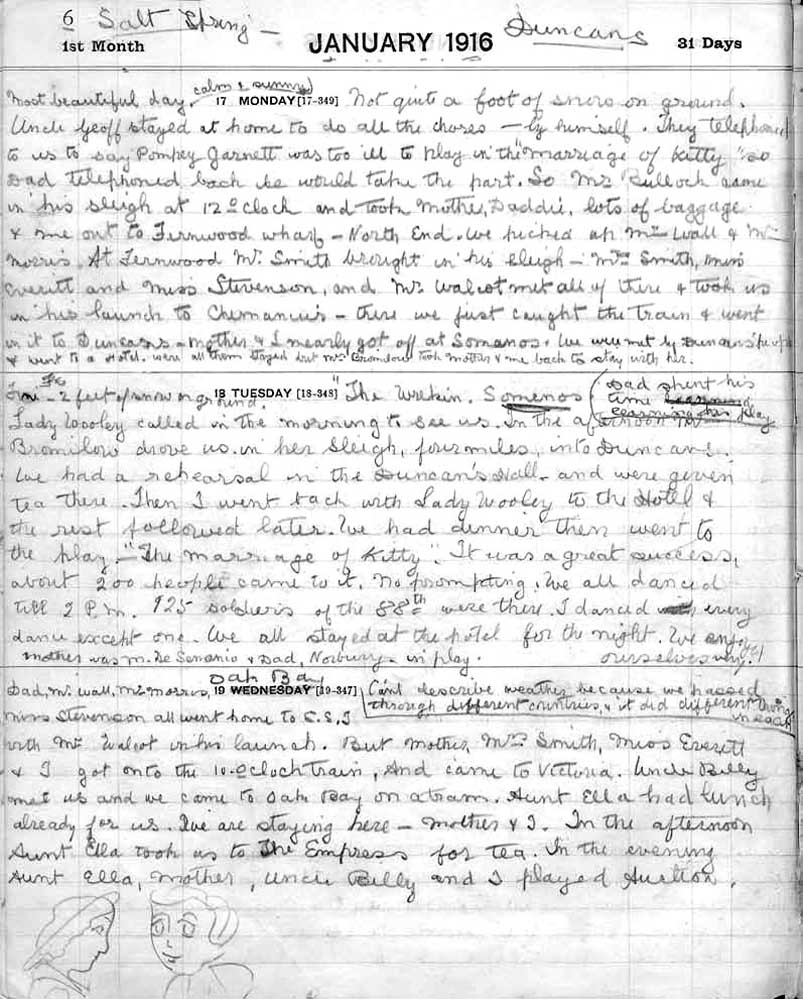 6 Salt Spring - Duncans
1st Month JANUARY 1916 31 Days
calm & sunny
Most beautiful day. 17 MONDAY [17-349] Not quite a foot of snow on ground.
Uncle Geoff stayed at home to do all the chores - by himself. They telephoned
to us to say Pompey Garnett was too ill to play in the "marriage of Kitty" so
Dad telephoned back he would take the part. So Mr Bullock came
in his sleigh at 12 o'clock and took Mother, Daddie, lots of baggage
& me out to Fernwood wharf - North End. We picked up Mr Wall & Mr
Morris. At Fernwood Mr Smith brought in his sleigh - Mrs Smith, Miss
Everitt and Miss Stevenson, and Mr Walcot met all of there & took us
in his launch to Chemanius - there we just caught the train & went
in it to Duncans - Mother & I nearly got off at Somanos. We were met by Duncans people
& went to a Hotel. were all them stayed but Mrs Bromilow took mother & me back to stay with her.
Fine - 2 feet of snow on ground. 18 TUESDAY [18-348] "The Wrekin. Somenos (Dad spent his
time learning his play
Lady Wooley called in the morning to see us. In the afternoon Mr
Bromilow drove us in her sleigh, four miles, into Duncans.
We had a rehearsal in the Duncan's Hall - and were given
tea there. Then I went back with Lady Wooley to the Hotel &
the rest followed later. We had dinner then went to
the play. "The marriage of Kitty". It was a great success,
about 200 people came to it. No prompting. We all danced
till 2 P.m. 925 soldiers of the 88th were there. I danced every
dance except one. We all stayed at the hotel for the night. We enjoyed
mother was M. De Semanio & Dad, Norbury - in play. ourselves very!
Oak Bay
Dad, Mr Wall, Mr Morris, 19 WEDNESDAY [19-347] Can't describe weather because we passed
through different countries, & it did different things in each
Miss Stevenson all went home to S.S.I
with Mr Walcot in his launch. But Mother, Mrs Smith, Miss Everett
& I got onto the 10-oclock train, And came to Victoria. Uncle Billy
met us and we came to Oak Bay on a tram. Aunt Ella had lunch
already for us. We are staying here - Mother & I. In the afternoon
Aunt Ella took us to The Empress for tea. In the evening
Aunt Ella, Mother, Uncle Billy and I played Auction.